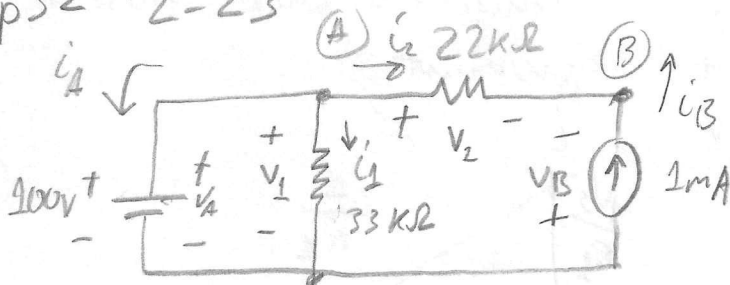 p32 2-23
A i₂ 22kΩ B
iA
iB
+ V₂ -
100V + -
+ VA -
+ V₁ -
i₁
33KΩ
- VB +
1mA